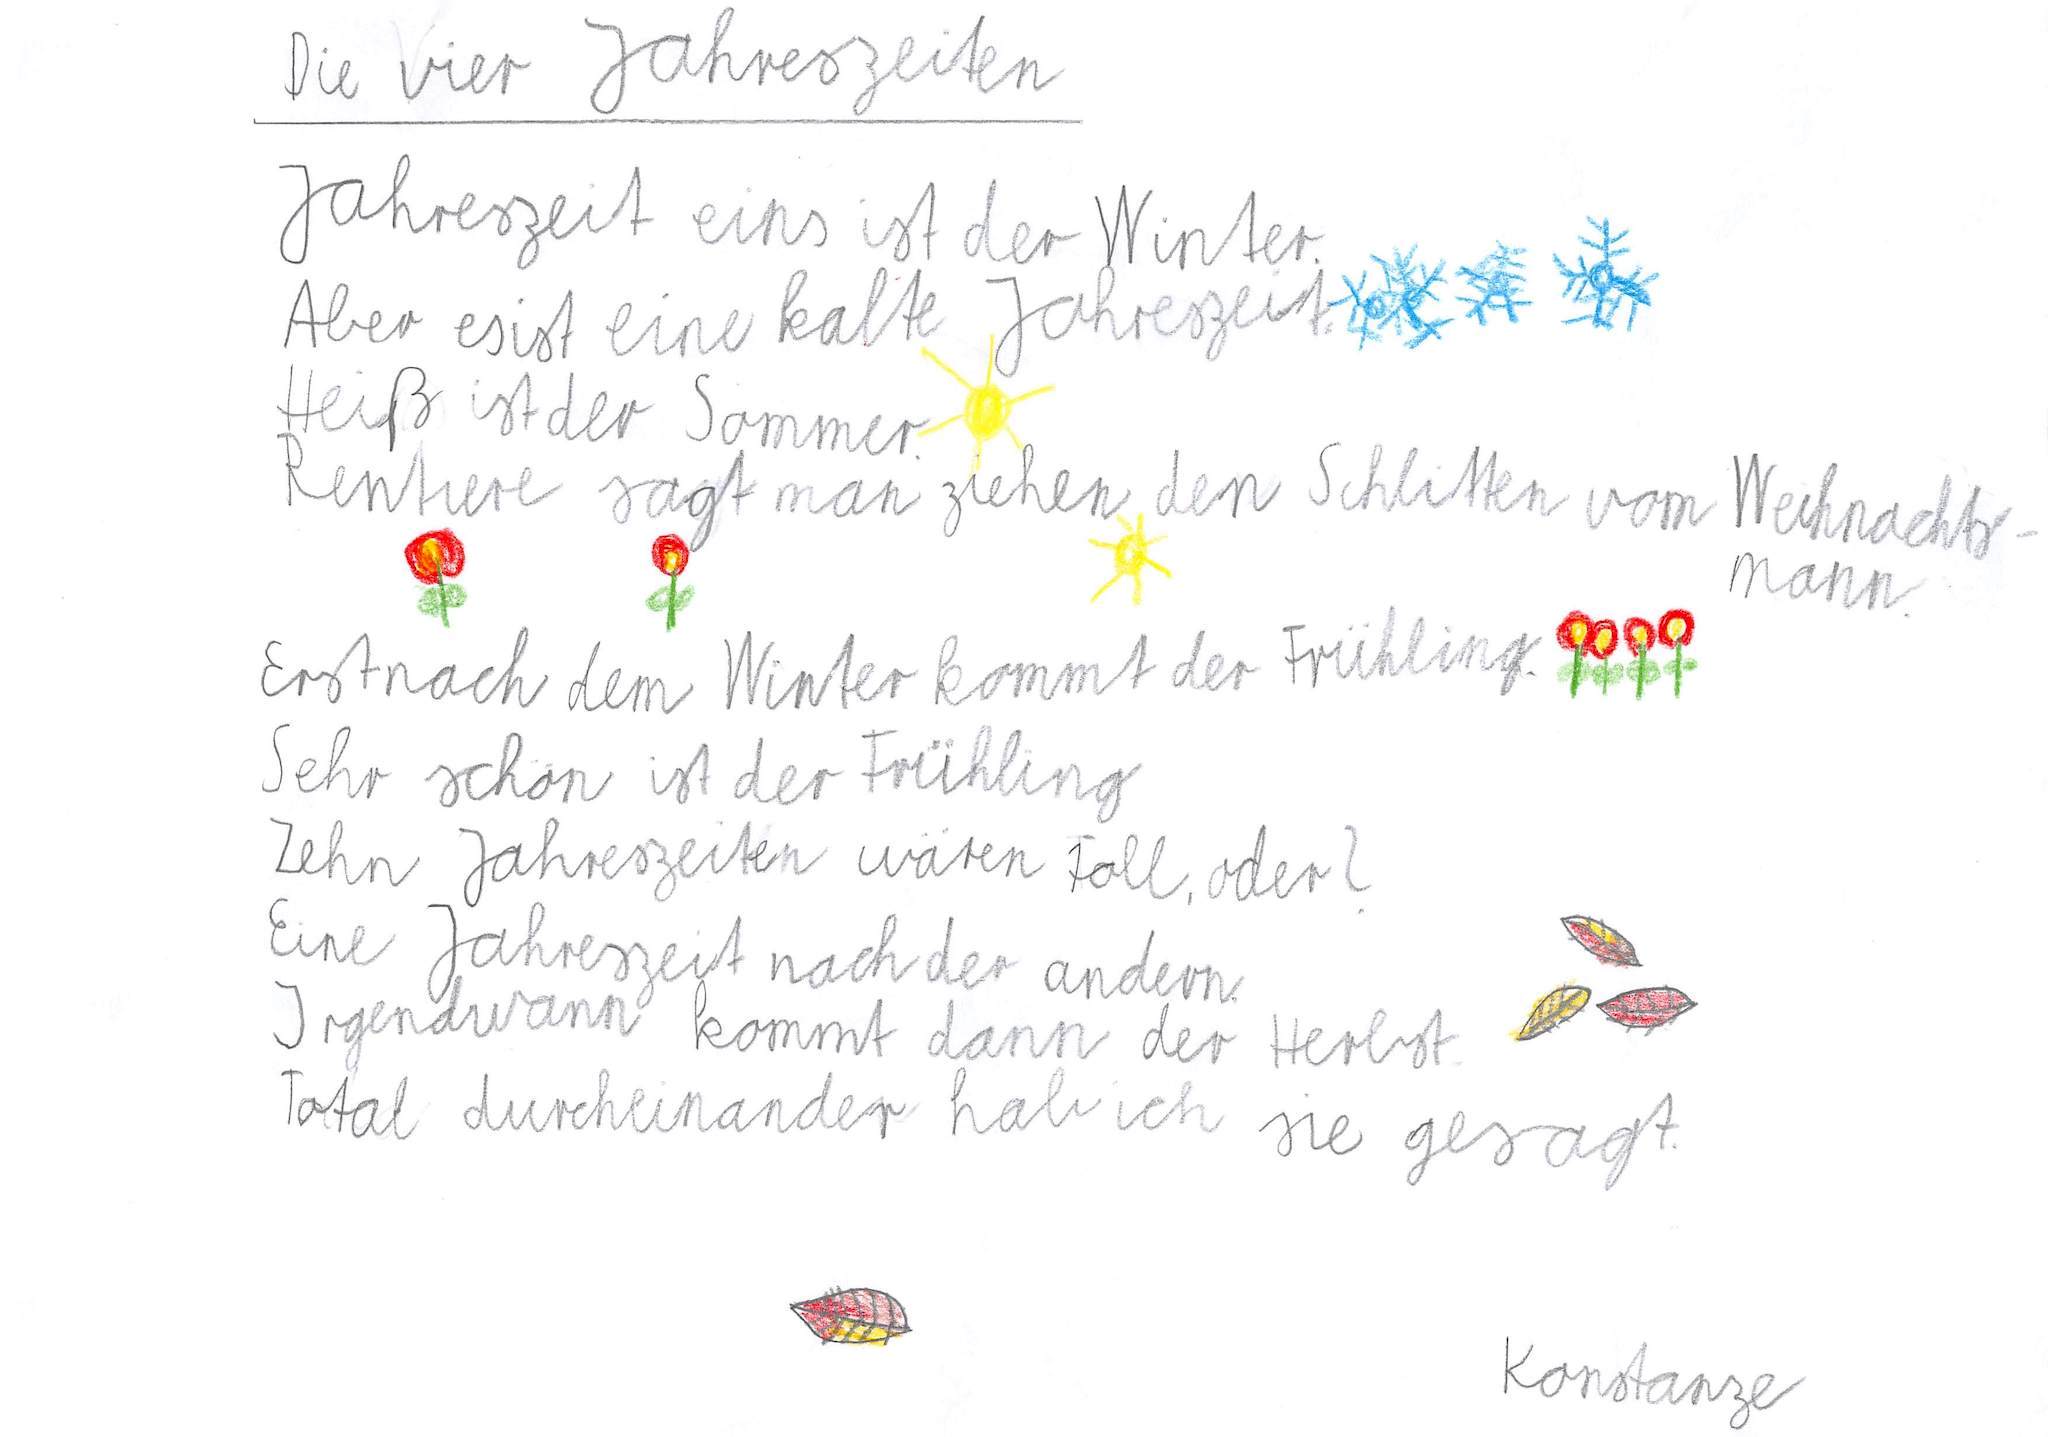 Die vier Jahreszeiten
Jahreszeit eins ist der Winter.
Aber es ist eine kalte Jahreszeit.
Heiß ist der Sommer.
Rentiere sagt man ziehen den Schlitten vom Weihnachts-
mann.
Erst nach dem Winter kommt der Frühling.
Sehr schön ist der Frühling
Zehn Jahreszeiten wären Toll, oder?
Eine Jahreszeit nach der andern.
Irgendwann kommt dann der Herbst.
Total durcheinander hab ich sie gesagt.
Konstanze